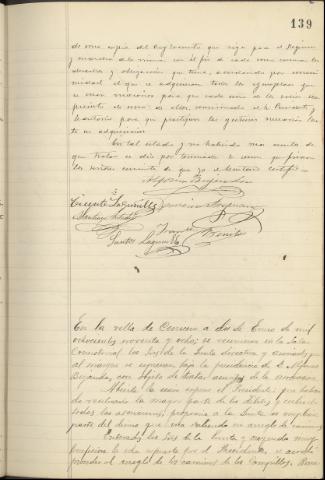 139
de una copia del Reglamento que rija para el Regimen
y marcha de la misma con el fin de cada uno conozca los
derechos y obligación que tiene, acordando por unani
midad el que se adquieran todos los ejemplares que
se crean necesarios para que cada uno de los socios sea
de uno de ellos, autorizando al Sr. Presidente y
Secretario para que practiquen las gestiones necesarias has
ta su adquisicion
En tal estado y no habiendo mas asunto de
que tratar se dio por terminada la sesion que firman
los Sres concurrentes de que yo el Secretario certifico.
Alfonso
Vicente Lagunilla
Santiago
Francisco
Santos Lagunilla
Benito
En la villa de Cenicero a dos de Enero de mil
ochocientos noventa y ocho; se reunieron en la Sala
Consistorial los Sres de la Junta directiva y asociados que
al margen se expresan, bajo la presidencia de D. Alfonso
con objeto de tratar asuntos de la
Abierta la sesion expuso el Presidente que habien
do recaudado la mayor parte de los debitos y cubierto
todas las atenciones, proponia a la Junta se emplease
parte del dinero que esta valiendo en arreglo de caminos
Enterados los Sres de la Junta y creyendo muy
lo expuesto por el Presidente, se acordó
proceder al arreglo de los caminos de los Campillos,